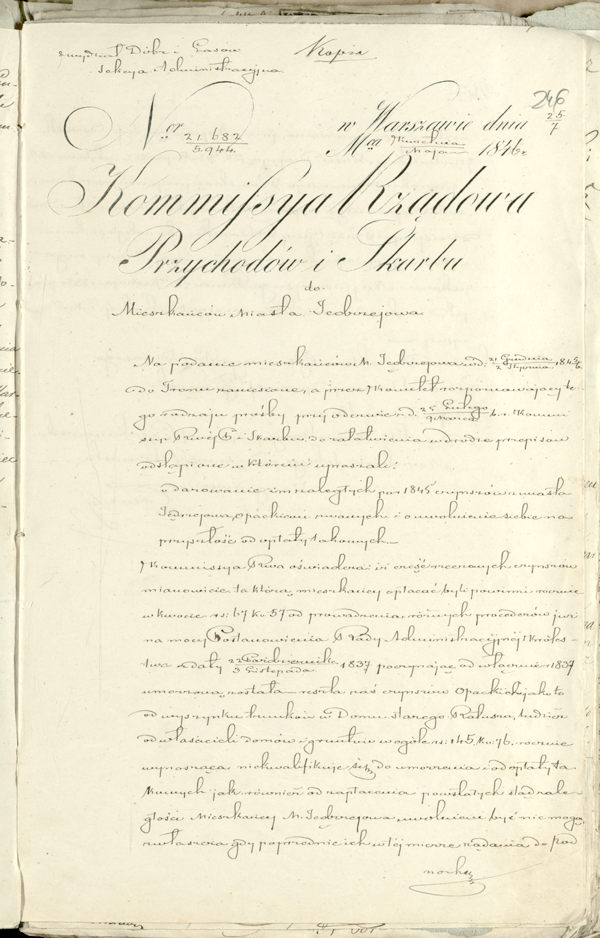 z wydziału Dóbr i Lasów
Sekcyja Administracyjna
Kopia
246
25/7
Nor 21 682/5.944.
w Warszawie dnia
Mca Kwietnia/Maja 1846 r.
Kommissya Rządowa
Przychodów i Skarbu
do
Mieszkańców Miasta Jędrzejowa
Na podanie mieszkańców M. Jędrzejowa z d. 21 Grudnia/2 Stycznia 184
do Tronu zaniesione, a przez Komitet rozpoznawający te-
go rodzaju prośby przy odezwie z d. 25 Lutego/9 Marca b. r. Kommi
ssyi Rzwéj P. i Skarbu, do załatwienia w drodze przepisów
odstąpione w którém upraszali:
o darowanie im zaległych po r. 1845 czynszów z miasta
Jędrzejowa, opackiemi zwanych i o uwolnienie siebie na
przyszłość od opłaty takowych.—
Kommissya Rzwa oświadcza: iż część rzeczonych czynszów
mianowicie ta którą mieszkańcy opłacać byli powinni rocznie
w kwocie rs: 67 ko: 57 od prowadzenia różnych procederów już
na mocy Postanowienia Rady Administracyjnéj Króles-
twa z daty 22 Października/3 Listopada 1837 poczynając od włącznie r. 1837
umorzoną została — reszta zaś czynszów Opackich jako to
od wyszynku trunków w Domu starego Ratusza, tudzież
od właścicieli domów i gruntów w ogóle rs: 145, ko: 76. rocznie
wynosząca niekwalifikuje się do umorzenia i od opłaty ta
kowych jak również od zapłacenia powstałych stąd zale-
głości Mieszkańcy M. Jędrzejowa uwolnieni być nie mogą,
zwłaszcza gdy poprzednie ich w téj mierze żądania do Pod